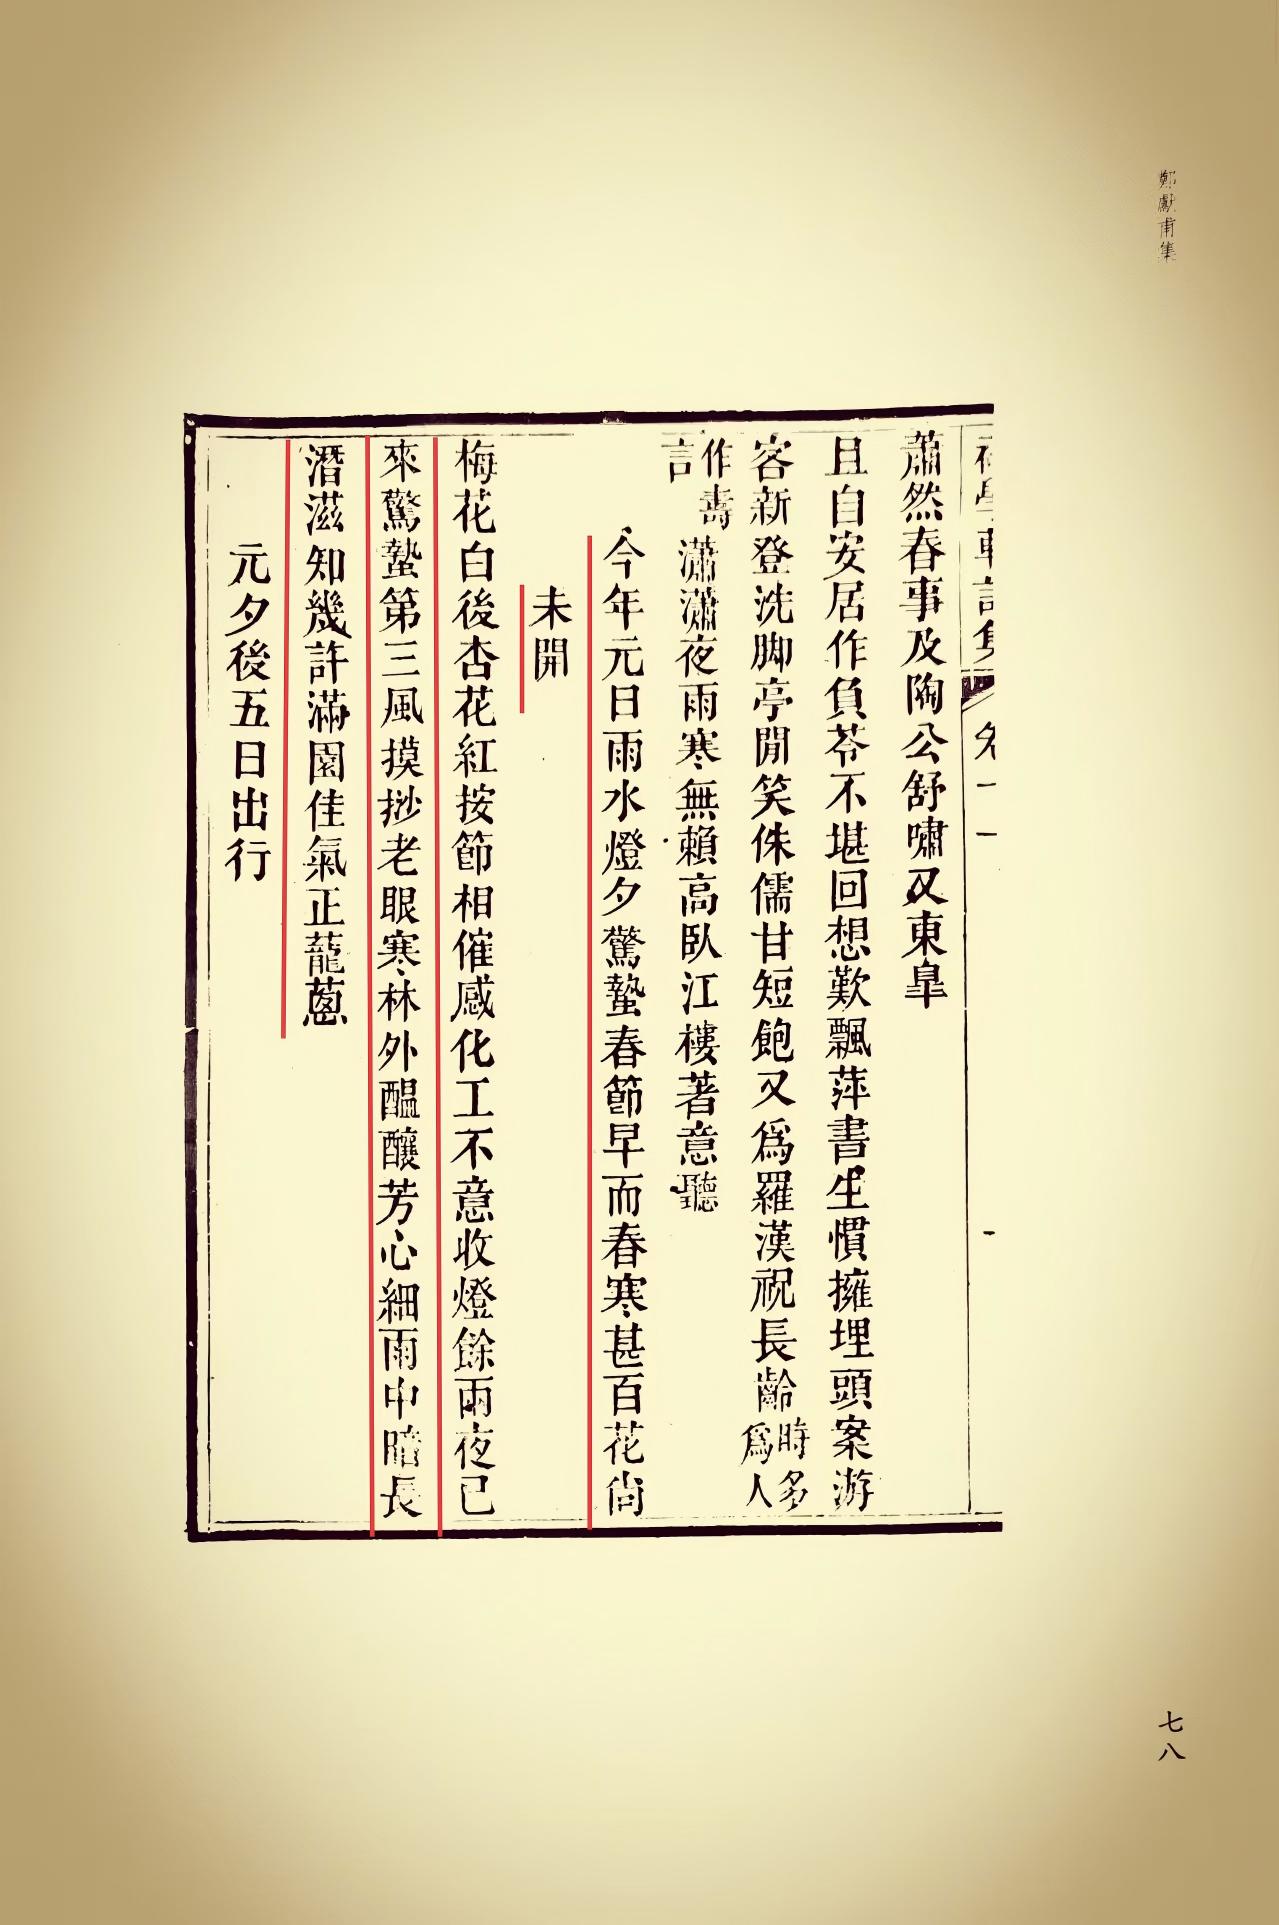 鄭獻甫集
蕭然春事及陶公舒嘯又東皐
且自安居作負苓不堪回想歎飄萍書生慣擁埋頭案游
客新登洗脚亭閒笑侏儒甘短飽又爲羅漢祝長齡時多爲人
作壽言瀟瀟夜雨寒無賴高臥江樓著意聽
今年元日雨水燈夕驚蟄春節早而春寒甚百花尙
未開
梅花白後杏花紅按節相催感化工不意收燈餘雨夜已
來驚蟄第三風摸挱老眼寒林外醞釀芳心細雨中暗長
潛滋知幾許滿園佳氣正蘢蔥
元夕後五日出行
七八